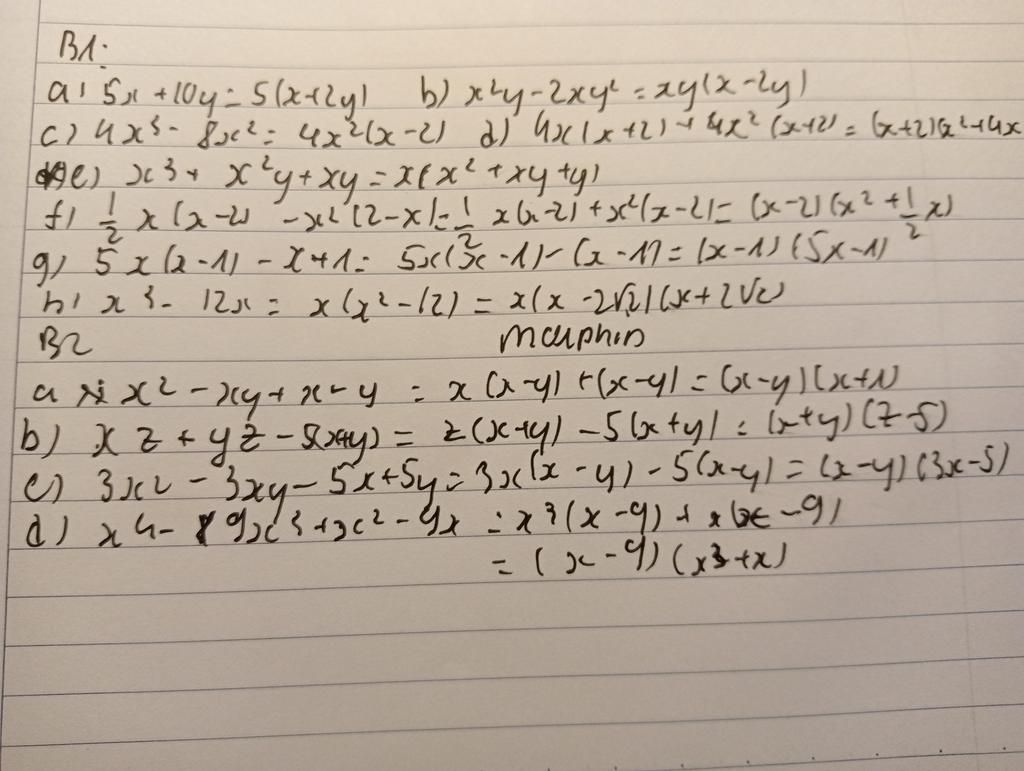 B1:
a) 5x + 10y = 5(x+2y) b) x²y - 2xy² = xy(x-2y)
c) 4x³ - 8x² = 4x²(x-2) d) 4x(x+2) + 4x²(x+2) = (x+2)(x²+4x
e) x³ + x²y + xy = x(x² + xy + y)
f) 1/2 x(x-2) - x²(2-x) = 1/2 x(x-2) + x²(x-2) = (x-2)(x² + 1/2 x)
g) 5x(x-1) - x+1 = 5x(x-1) - (x-1) = (x-1)(5x-1)
h) x³ - 12x = x(x²-12) = x(x - 2√2)(x + 2√2)
B2
a x² - xy + x - y = x(x-y) + (x-y) = (x-y)(x+1)
b) xz + yz - 5(x+y) = z(x+y) - 5(x+y) = (x+y)(z-5)
c) 3x² - 3xy - 5x + 5y = 3x(x-y) - 5(x-y) = (x-y)(3x-5)
d) x4 - 9x³ + x² - 9x = x³(x-9) + x(x-9)
= (x-9)(x³+x)